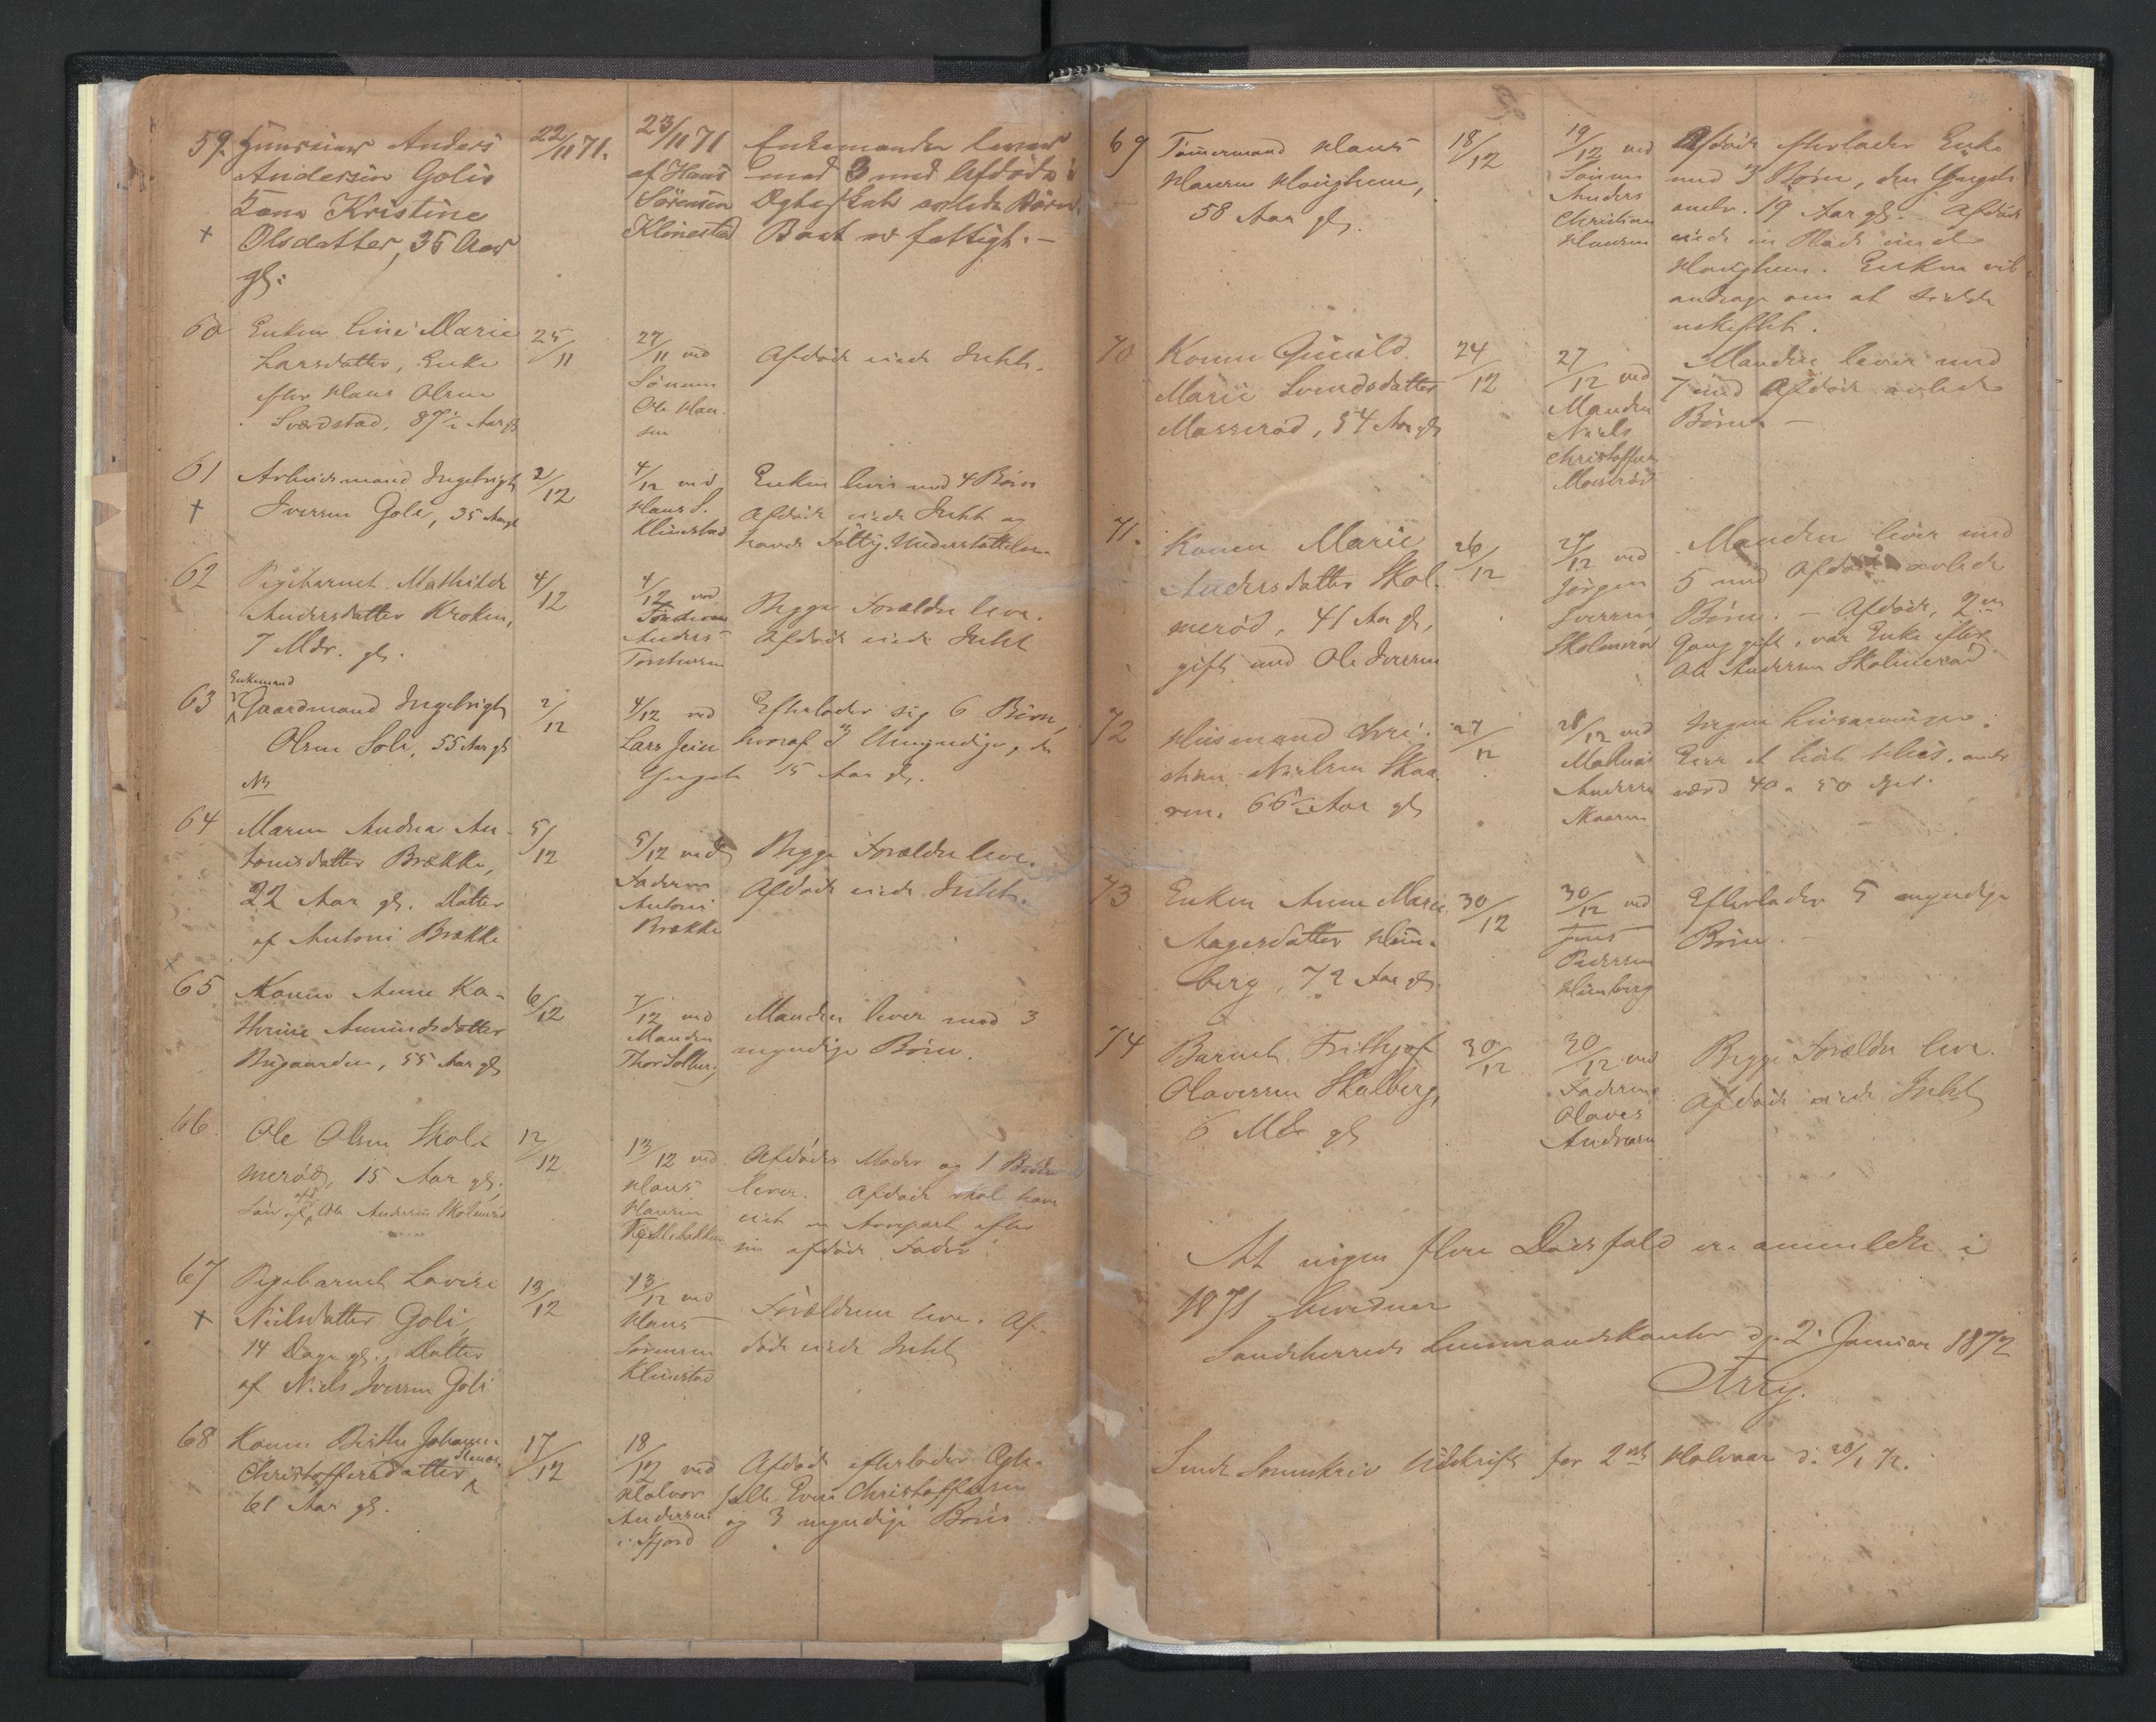 59. Huusmand Anders
Andersen Golis
Kone Kristine
Olsdatter, 35 Aar
gl:
22/11 71.
23/11 71
af Hans
Sørensen
Klinestad
Enkemanden lever
med 3 med Afdøde i
Ægteskab avlede Børn.
Boet er fattigt. —
60 Enken Line Marie
Larsdatter, Enke
efter Hans Olsen
Sverdstad, 87½ Aar gl
25/11
27/11 ved
Sønnen
Ole Han-
sen
Afdøde eiede Intet.
61 Arbeidsmand Ingebrigt
Iversen Goli, 35 Aar gl
2/12
4/12 ved
Hans S.
Klinestad
Enken lever med 4 Børn
Afdøde eiede Intet og
havde Fattig-Understøttelse.
62 Pigebarnet Mathilde
Andersdatter Kroken,
7 Mdr. gl.
4/12
4/12 ved
Faderen
Anders
Begge Forældre leve.
Afdøde eiede Intet
63 Enkemand
Gaardmand Ingebrigt
Olsen Sole, 55 Aar gl
NB
2/12
4/12 ved
Lars Jein
Efterlader sig 6 Børn,
hvoraf 3 Umyndige, den
Yngste 15 Aar gl.
64 Maren Andrea An-
tonisdatter Brække,
22 Aar gl. Datter
af Antoni Brække
5/12
5/12 ved
Faderen
Antoni
Brække
Begge Forældre leve.
Afdøde eiede Intet.
65 Konen Anne Ka-
thrine Amundsdatter
Bugaarden, 55 Aar gl
6/12
7/12 ved
Manden
Thor Solberg
Manden lever med 3
myndige Børn.
66 Ole Olsen Skol-
merød, 15 Aar gl.
Søn af afd. Ole Andersen Skolmerød
12/12
13/12 ved
Hans
Hansen
Afdødes Moder og 1 Broder
lever. Afdøde skal have
eiet en Arvepart efter
sin afdøde Fader.
67 Pigebarnet Lovise
Nielsdatter Goli,
14 Dage gl., Datter
af Niels Iversen Goli
13/12
13/12 ved
Hans
Sørensen
Klinestad
Forældrene leve. Af-
døde eiede Intet
68 Konen Birthe Johanne
Christoffersdatter
61 Aar gl.
17/12
18/12 ved
Halvor
Andersen
i Fjord
Afdøde efterlader Ægte-
fælle Even Christoffersen
og 3 myndige Børn
69 Tømmermand Hans
Hansen Haughem,
58 Aar gl.
18/12
19/12 ved
Sønnen
Anders
Christian
Hansen
Afdøde efterlader Enke
med 3 Børn, den Yngste
omtr. 19 Aar gl. Afdøde
eiede en Plads under
Haughem. Enken vil
andrage om at sidde
uskiftet.
70 Konen Gunild
Marie Svendsdatter
Masserød, 54 Aar gl
24/12
27/12 ved
Manden
Niels
Christoffersen
Masserød
Manden lever med
7 med Afdøde avlede
Børn —
71. Konen Marie
Andersdatter Skol-
merød, 41 Aar gl,
gift med Ole Iversen
26/12
27/12 ved
Jørgen
Iversen
Skolmerød
Manden lever med
5 med Afdøde avlede
Børn. — Afdøde, 2den
Gang gift, var Enke efter
Ole Andersen Skolmerød
72 Husmand Chri-
stian Nielsen Skaa-
ren, 66½ Aar gl
27/12
28/12 ved
Mathias
Andersen
Skaaren
Ingen Livsarvinger.
Eier et lidet Huus, omtr
værd 40 a 50 Spd.
73 Enken Anne Marie
Aagesdatter Heim-
berg, 72 Aar gl.
30/12
30/12 ved
Jens
Pedersen
Himberg
Efterlader 5 myndige
Børn. —
74 Barnet Frithjof
Olavessen Skalberg,
6 Mdr gl
30/12
30/12 ved
Faderen
Olaves
Andreasen
Begge Forældre leve.
Afdøde eiede Intet
At ingen flere Dødsfald ere anmeldte i
1871 bevidner
Sandeherreds Lensmandskontor d. 2 Januar 1872
Sendt Sorenskriv Udskrift for 2det Halvaar d. 20/1 72.